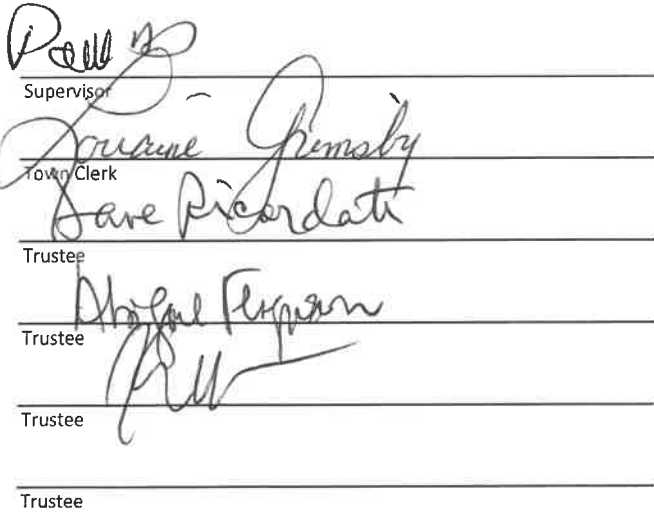 Paul
Supervisor
Lorraine Grimsby
Town Clerk
Dave Ricordati
Trustee
Abigail Ferguson
Trustee
Trustee
Trustee